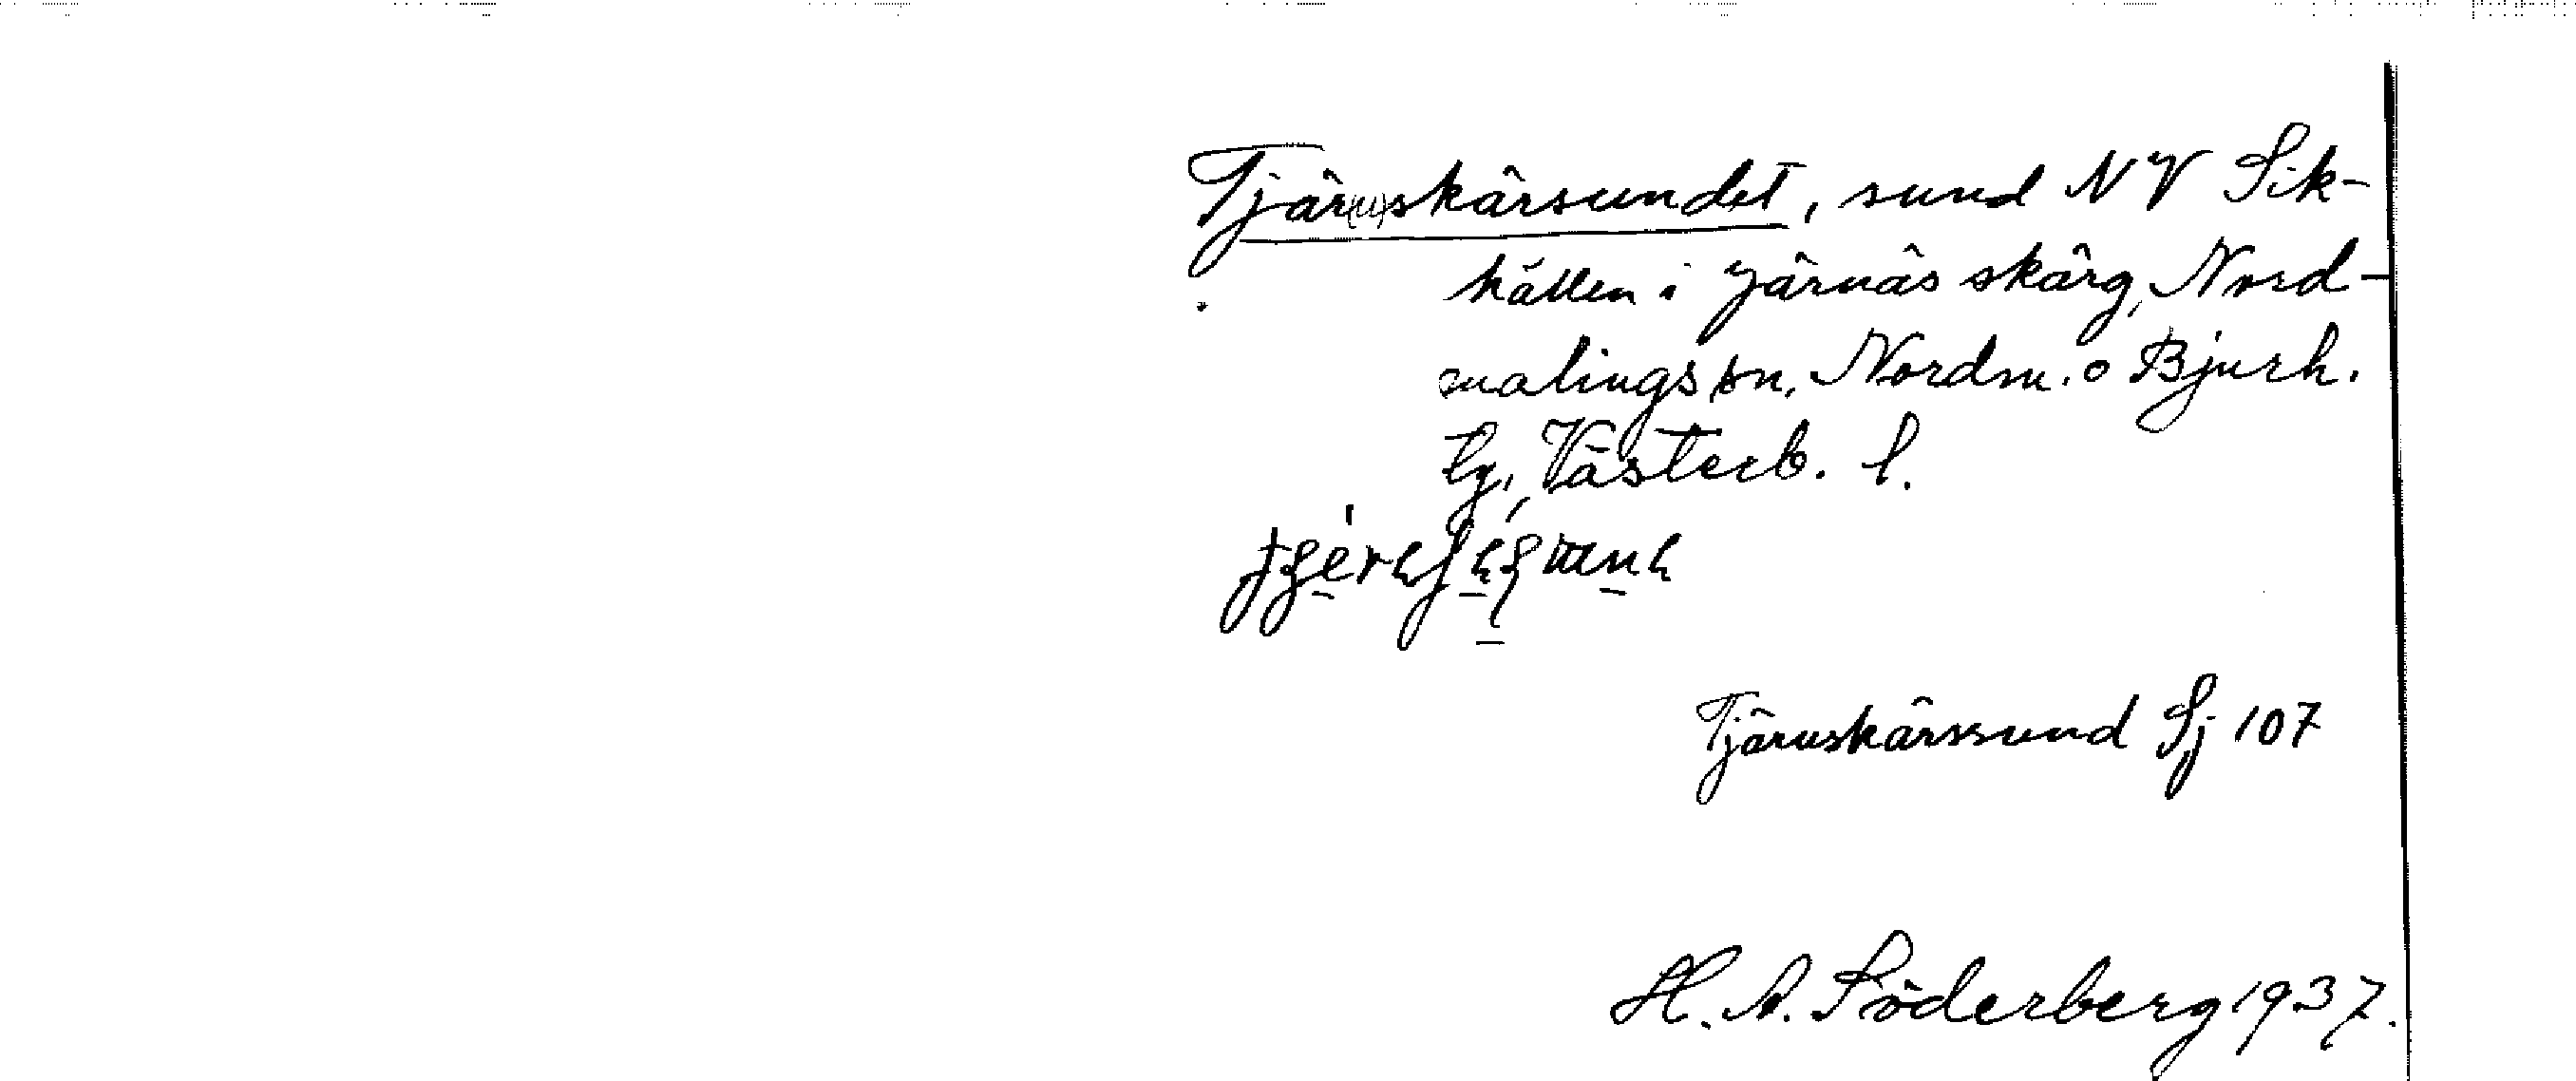 Tjär(u)skärsundet, sund NV Sik-
hällen i Järnäs skärg, Nord-
malings sn, Nordm. o Bjurh.
tg, Västerb. l.
Tjäruskärssund Sj 107
H. A. Söderberg 1937.